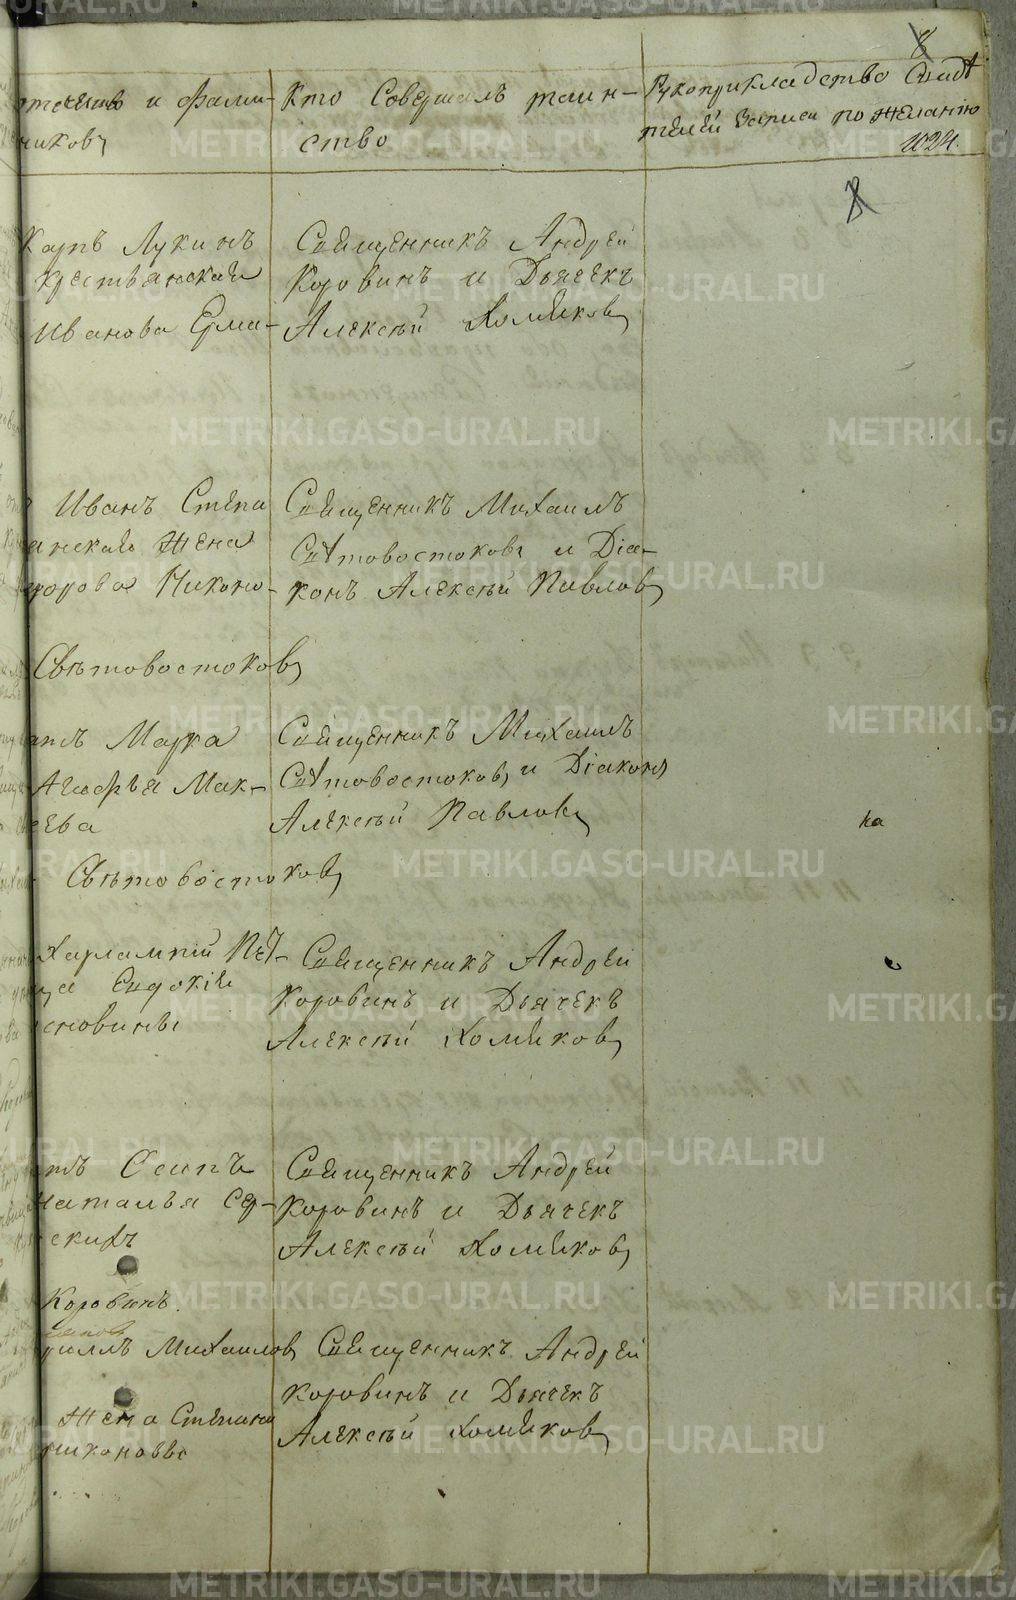 8
отчество и фами-
никовъ
Кто Совершалъ таин-
ство
Рукоприкладство Свидѣ
телей записи по желанію
1024.
8
Карпъ Лукинъ
Крестьянская
Иванова Ерма-
Священникъ Андрей
Коровинъ и Дьячекъ
Алексѣй Хомяковъ
Иванъ Степа
анская жена
дорова Никоно-
Священникъ Михаилъ
Свѣтовостоковъ и Діа-
конъ Алексѣй Павловъ
Свѣтовостоковъ
Марка
Агафья Мак-
сеева
Священникъ Михаилъ
Свѣтовостоковъ и Діаконъ
Алексѣй Павловъ
Свѣтовостоковъ
Харлампій Пет-
ца Евдокія
новины
Священникъ Андрей
Коровинъ и Дьячекъ
Алексѣй Хомяковъ
Осипъ
Наталья Сер-
скихъ
Священникъ Андрей
Коровинъ и Дьячекъ
Алексѣй Хомяковъ
Коровинъ.
риллъ Михаиловъ
жена Степани
никоновыв
Священникъ Андрей
Коровинъ и Дьячекъ
Алексѣй Хомяковъ
METRIKI.GASO-URAL.RU